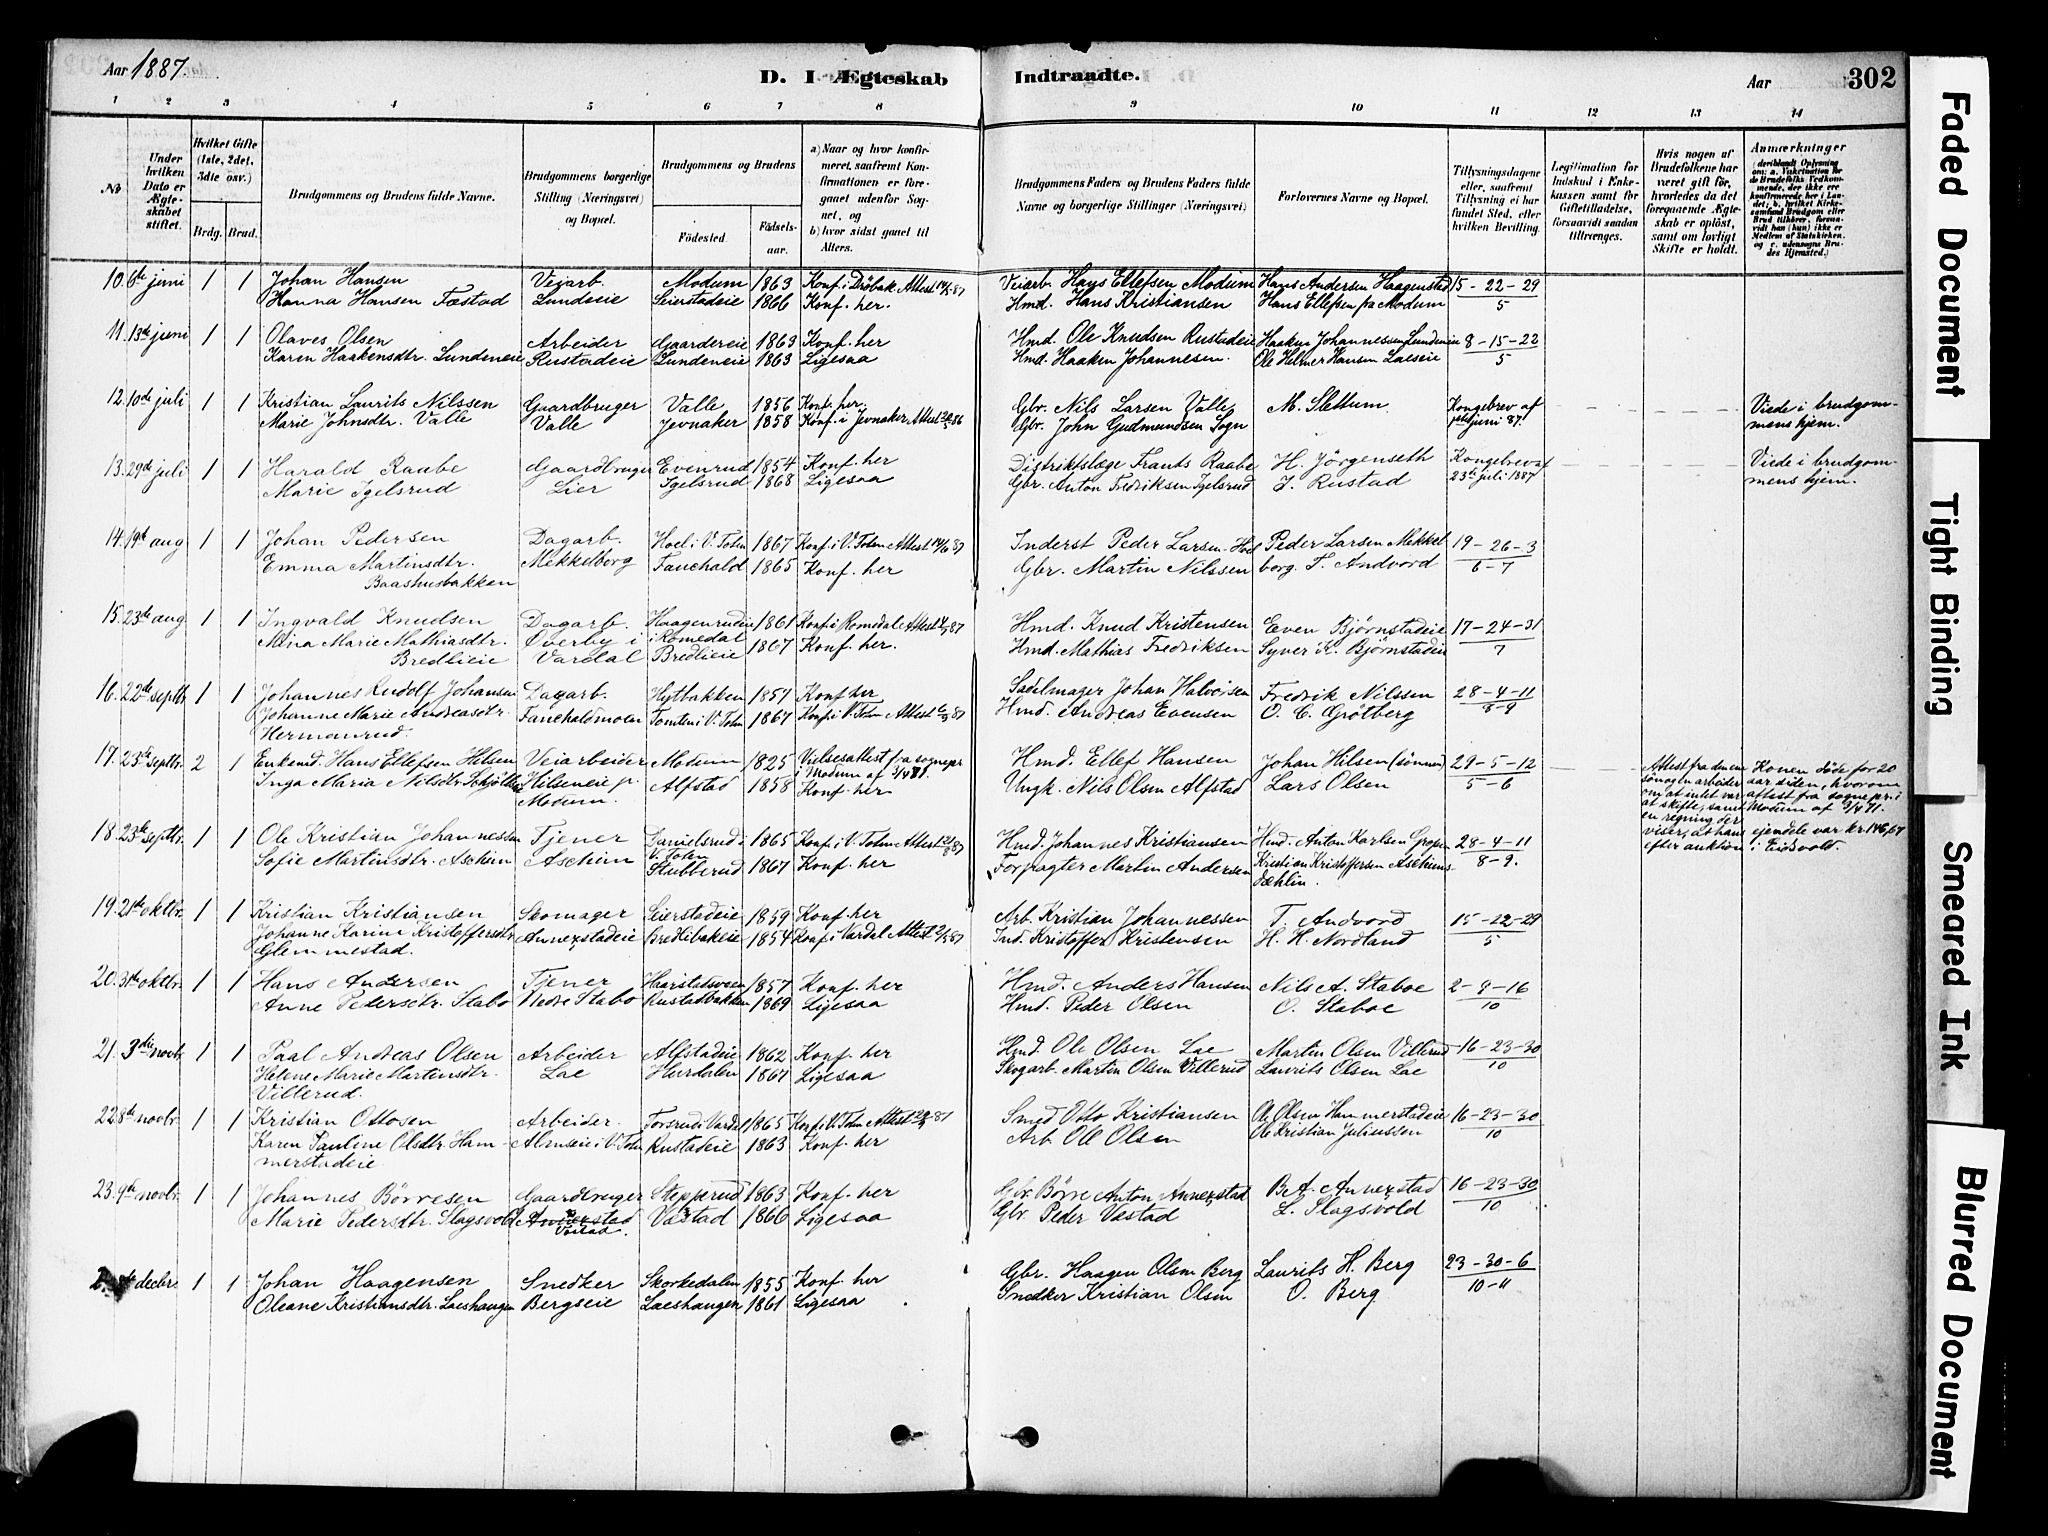 Aar 1887.
D. I Ægteskab Indtraadte.
Aar 302
1 2 3 4 5 6 7 8 9 10 11 12 13 14
No
Under hvilken Dato er Ægteskabet stiftet.
Hvilket Gifte (1ste, 2det, 3die osv.)
Brdg. Brud.
Brudgommens og Brudens fulde Navne.
Brudgommens borgerlige Stilling (Næringsvei) og Bopæl.
Brudgommens og Brudens
Födested.
Födselsaar.
a) Naar og hvor konfirmeret, saafremt Konfirmationen er foregaaet udenfor Sognet, og
b) hvor sidst gaaet til Alters.
Brudgommens Faders og Brudens Faders fulde Navne og borgerlige Stillinger (Næringsvei)
Forlovernes Navne og Bopæl.
Tillysningsdagene eller, saafremt Tillysning ei har fundet Sted, efter hvilken Bevilling.
Legitimation for Indskud i Enkekassen samt for Giftetilladelse, forsaavidt saadan tiltrænges.
Hvis nogen af Brudefolkene har været gift før, hvorledes da det foregaaende Ægteskab er oplöst, samt om lovligt Skifte er holdt.
Anmærkninger
10. 6te juni 1 1 Johan Hansen Vejarb. Modum 1863 Konf. i Dröbak Attest 14/5 87 Veiarb. Hans Ellefsen Modum Hans Andersen Haagenstad 15-22-29
Hanna Hansen Fæstad Lundeeie Seierstadeie 1866 Konf. her. Hmd. Hans Kristiansen Hans Ellefsen paa Modum 5
11. 13de juni 1 1 Olaves Olsen Arbeider Gaardereie 1863 Konf. her Hmd. Ole Knudsen Rustadeie Haaken Johannessen Lundeneie 8-15-22
Karen Haakensdtr. Lundeneie Rustadeie Lundeneie 1863 Ligesaa Hmd. Haaken Johannesen. Ole Helmer Hansen Laeseie 5
12. 10de juli 1 1 Kristian Laurits Nilssen Gaardbruger Valle 1856 Konf. her. Gbr. Nils Larsen Valle M. Slettum Kongebrev af Viede i brudgom-
Marie Johnsdtr. Valle Valle Jevnaker 1858 Konf. i Jevnaker Attest Gbr. John Gudmundsen Sogn juni 87. mens hjem.
13. 29de juli 1 1 Harald Raabe Gaardbruger Evenrud 1854 Konf. her Distriktslæge Frants Raabe H. Jörgenseth Kongebrev af Viede i brudgom-
Marie Igelsrud Lier Igelsrud 1868 Ligesaa Gbr. Anton Fredriksen Igelsrud J. Rustad 23de juli 1887 mens hjem.
14. 19de aug 1 1 Johan Pedersen Dagarb. Hoel i V. Toten 1867 Konf. i V. Toten Attest 14/6 87 Inderst Peder Larsen Hoel Peder Larsen Mekkel 19-26-3
Emma Martinsdtr. Mekkelborg Fauchald 1865 Konf. her Gbr. Martin Nilssen borg. T. Andvord 6-7
Baashusbakken
15. 23de aug 1 1 Ingvald Knudsen Dagarb. Haagenrudeie 1861 Konf. i Romedal Attest 87 Hmd. Knud Kristensen Even Bjørnstadeie 17-24-31
Mina Marie Mathiasdtr. Øverby i i Romedal 1867 Konf. her. Hmd. Mathias Fredriksen Syver K. Bjørnstadeie 7
Bredlieie Vardal Bredlieie
16. 22de septbr 1 1 Johannes Rudolf Johansen Dagarb. Hytbakken 1857 Konf her Sadelmager Johan Halvorsen Fredrik Nilssen 28-4-11
Johanne Marie Andreasdtr. Fauchaldmoen Tomten i V. Toten 1867 Konf. i V. Toten Attest 87 Hmd. Andreas Evensen O. C. Grötberg 8-9
Hermanrud
17. 23de septbr. 2 1 Enkemd. Hans Ellefsen Hilsen Veiarbeider Modum 1825 Vielsesattest fra sognepr. Hmd. Ellef Hansen Johan Hilsen (sönnen) 29-5-12
i Modum af 3/4 71.
Inga Maria Nilsdtr. Hilseneie p. Modum. Alfstad 1858 Konf. her Ungk. Nils Olsen Alfstad Lars Olsen 5-6
Attest fra denne sönogen arbeider om at intet var at skifte, samt en regning der viser, at hans ejendele var kr. 146,67 efter auktion i Eidsvold.
Konen döde for 20 aar siden, hvorom attest fra sognepr. i Modum af 3/4 71.
18. 23de septbr. 1 1 Ole Kristian Johannessen Tjener Danielsrud i 1865 Konf. i V. Toten Attest 87 Hmd. Johannes Kristiansen Hmd. Anton Karlsen Gropen 28-4-11
Sofie Martinsdtr. Aschim Aschim V. Toten Stubberud 1867 Konf. her Forpagter Martin Andersen Kristian Kristoffersen Aschims- 8-9.
dæhlin.
19. 21de oktbr. 1 1 Kristian Kristiansen Skomager Seierstadeie 1859 Konf. her Arb. Kristian Johannessen T. Andvord 15-22-29
Johanne Karine Kristoffersdtr. Annexstadeie Bredlibakeie 1854 Konf i Vardal Attest 2/5 87 Ind. Kristoffer Kristensen H. H. Nordland 5
Glemmestad.
20. 31te oktbr. 1 1 Hans Andersen Tjener Haarstadsveen 1857 Konf. her Hmd. Anders Hansen Nils A. Staboe 2-9-16
Anne Pedersdtr. Stabo Nedre Stabo Rustadbakken 1869 Ligesaa Hmd. Peder Olsen O. Staboe 10
21. 3die novbr. 1 1 Paal Andreas Olsen Arbeider Alfstadeie 1862 Konf. her Hmd. Ole Olsen Lae Martin Olsen Villerud 16-23-30
Helene Marie Martinsdtr. Lae Hurdalen 1867 Ligesaa Skogarb. Martin Olsen Villerud Laurits Olsen Lae 10
Villerud.
22. 8de novbr. 1 1 Kristian Ottosen Arbeider. Forsrud i Vardal 1865 Konf. i V. Toten Attest 87 Smed Otto Kristiansen Ole Olsen Hammerstadeie 16-23-30
Karen Pauline Olsdtr. Ham- Almseie i V. Toten Rustadeie 1863 Konf. her Arb. Ole Olsen Ole Kristian Juliussen 10
merstadeie.
23. 9de novbr. 1 1 Johannes Börresen Gaardbruger Stepperud 1863 Konf. her Gbr. Börre Anton Annexstad B. A. Annexstad 16-23-30
Marie Pedersdtr. Slagsvold Annexstad Væstad 1866 Ligesaa Gbr. Peder Væstad L. Slagsvold 10
decbr. 1 1 Johan Haagensen Snedker Skorkedalen 1855 Konf. her Gbr. Haagen Olsen Berg Laurits H. Berg 23-30-6
Oleane Kristiansdtr. Laeshaugen Bergseie Laeshaugen 1861 Ligesaa Snedker Kristian Olsen O. Berg 10-11
Faded Document
Tight Binding
Smeared Ink
Blurred Document